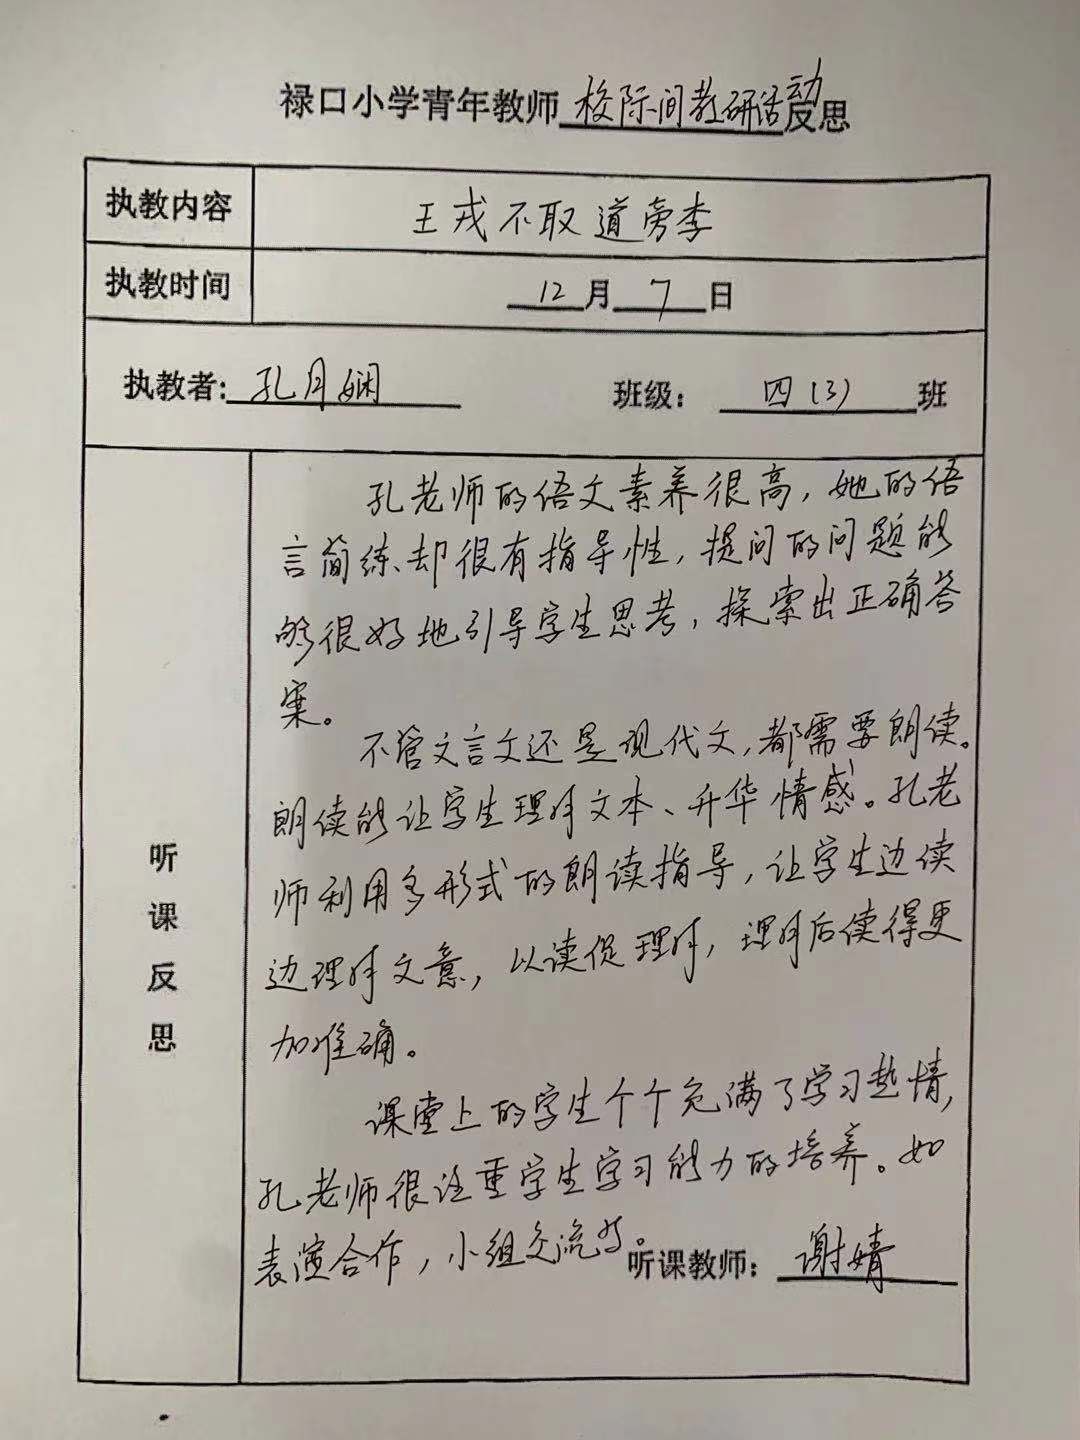 禄口小学青年教师校际间教研活动反思
执教内容 王戎不取道旁李
执教时间 12月7日
执教者：孔月娴 班级：四(3)班
听课反思
孔老师的语文素养很高，她的语
言简练、却很有指导性，提问的问题能
够很好地引导学生思考，探索出正确答
案。
不管文言文还是现代文，都需要朗读。
朗读能让学生理解文本、升华情感。孔老
师利用多形式的朗读指导，让学生边读
边理解文意，以读促理解，理解后读得更
加准确。
课堂上的学生个个充满了学习热情，
孔老师很注重学生学习能力的培养。如
表演合作，小组交流等。
听课教师：谢婧